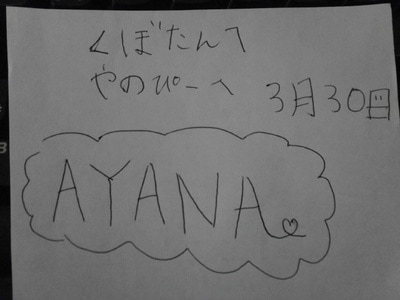 くぼたんへ
やのぴーへ 3月30日
AYANA♡